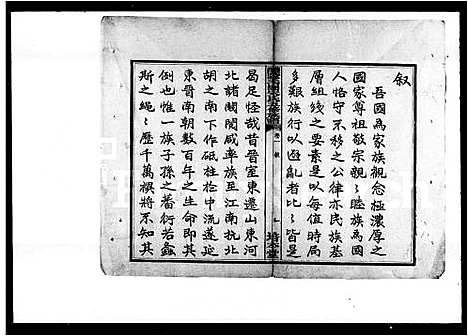 叙
吾國為家族觀念極濃厚之
國家尊祖敬宗親親睦族為國
人恪守不移之公律亦民族基
層組織之要素是以每值時局
多艱族行以遊亂者比比皆是
曷足怪哉昔晉室東遷山東河
北諸閥閱咸率族至江南抗北
胡之南下作砥柱於中流遂延
東晉南朝數百年之生命
倒也惟一族子孫之蕃衍若螽
斯之繩繩歷千萬禩將不知其